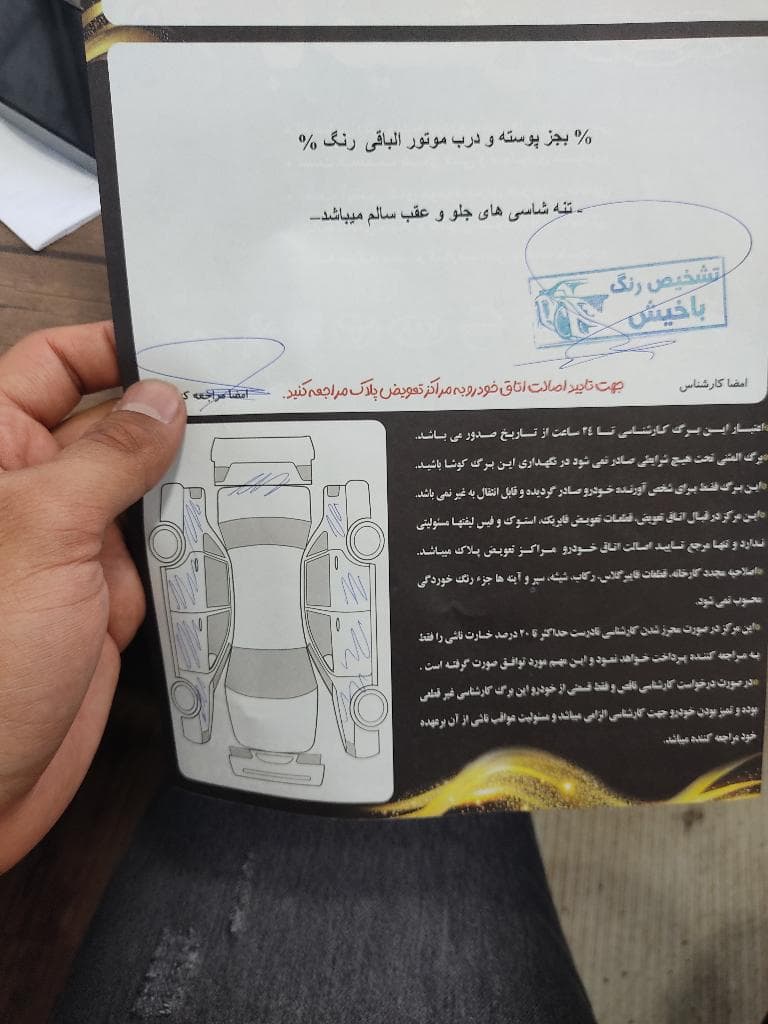 % بجز پوسته و درب موتور الباقی رنگ %
- تنه شاسی های جلو و عقب سالم میباشد-
تشخیص رنگ
باخیش
امضا کارشناس
جهت تایید اصالت اتاق خودرو به مراکز تعویض پلاک مراجعه کنید.
امضا مراجعه ک
اعتبار ایـن بـرگ کارشناسی تـا ٢٤ ساعت از تـاریخ صدور می بـاشد.
برگ المثنی تحت هیچ شرایطی صادر نمی شود در نگهداری این برگ کوشا باشید.
این برگ فقط برای شخص آورنده خودرو صادر گردیده و قابل انتقال به غیر نمی باشد.
این مرکز در قبال اتاق تعویض، قطعات تعویض فابریک، استوک و فیس لیفتها مسئولیتی
ندارد و تنها مرجع تـایـید اصالت اتاق خـودرو مـراکـز تعویض پـلاک میبـاشد.
اصلاحیه مجدد کارخانه، قطعات فایبرگلاس، رکاب، شیشه، سپر و آینه ها جزء رنگ خوردگی
محسوب نمی شود.
این مرکز در صورت محرز شدن کارشناسی نادرست حداکثر تا ٢٠ درصد خسارت ناشی را فقط
بـه مـراجعه کننـده پرداخت خـواهد نمـود و ایـن مهم مورد توافـق صورت گرفتـه است .
در صورت درخواست کارشناسی ناقص و فقط قسمتی از خودرو این برگ کارشناسی غیر قطعی
بوده و تمیز بودن خودرو جهت کارشناسی الزامی میباشد و مسئولیت عواقب ناشی از آن برعهده
خود مراجعه کننده میباشد.